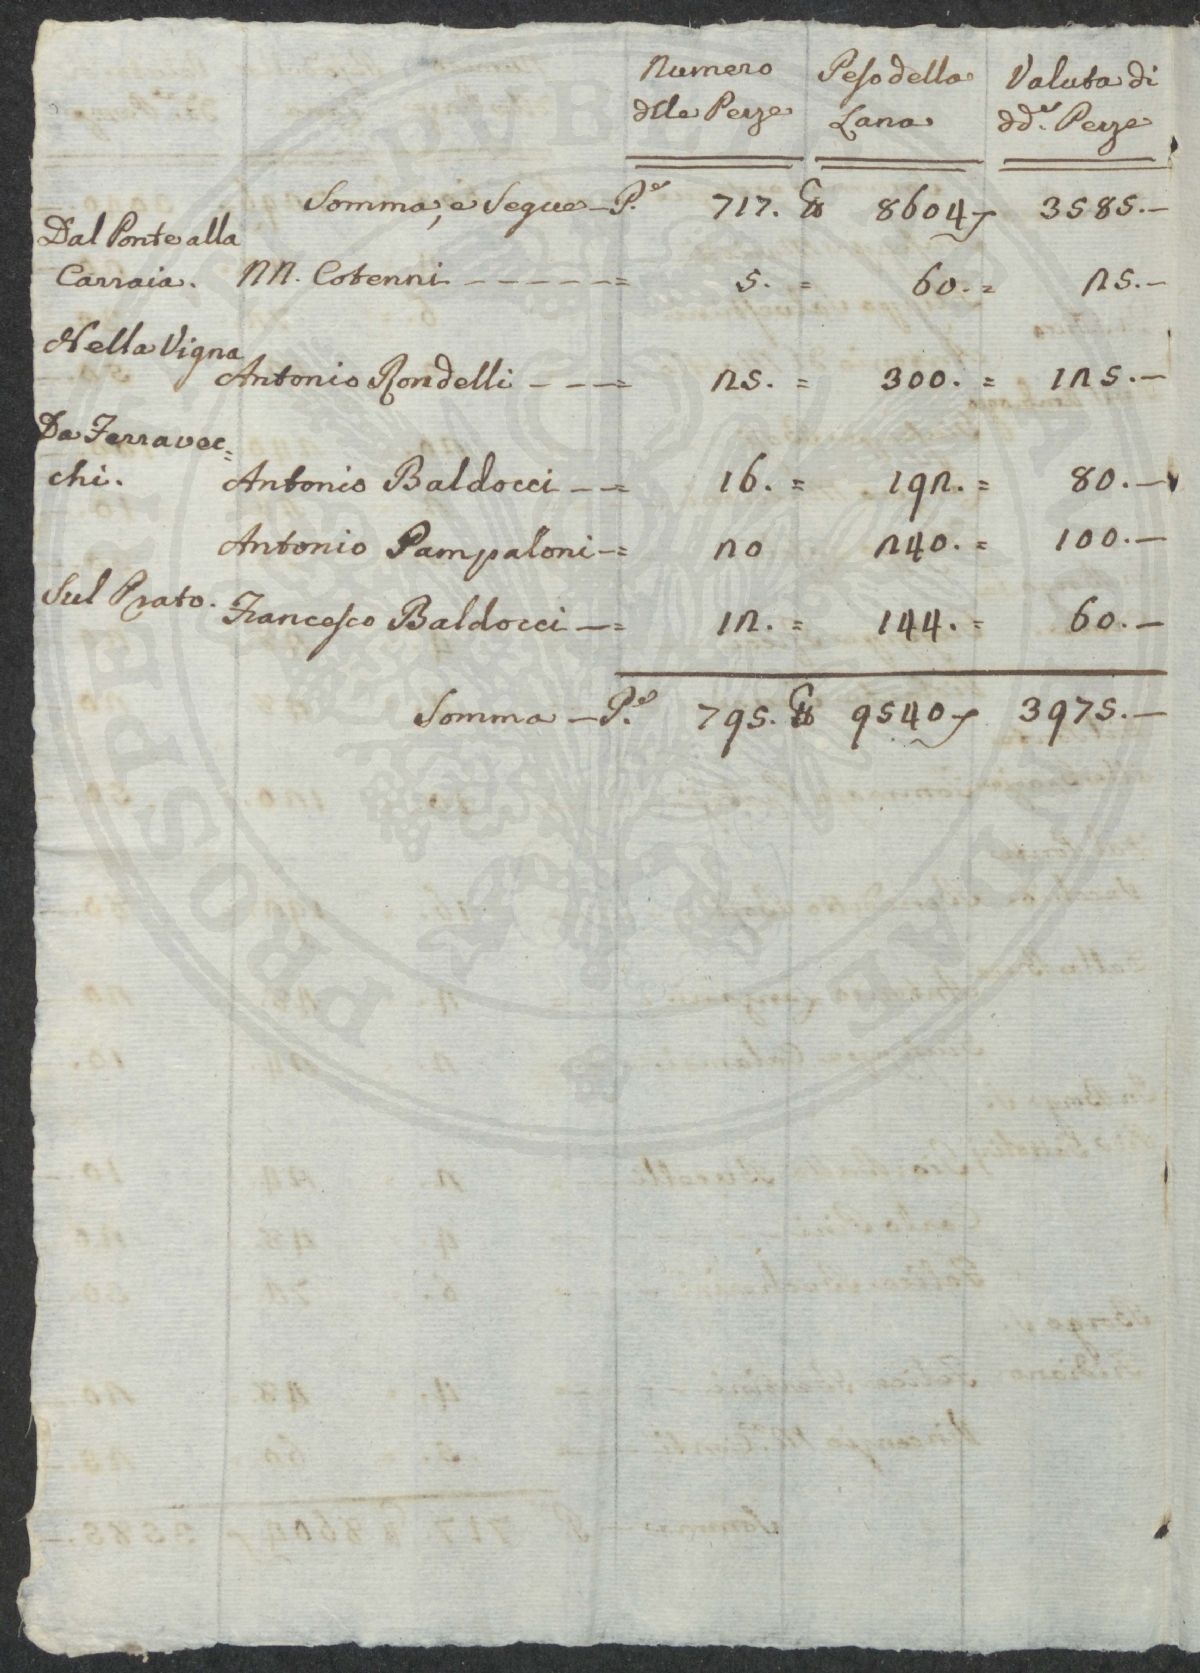 Numero
dlle Pezze
Peso della
Lana
Valuta di
dd.e Pezze
Somma, e Segue — P.e 717. ₶ 8604 3585.—
Dal Ponte alla
Carraia. NN. Cotenni ------= 5. = 60. = 25.—
Nella Vigna
Antonio Rondelli ---= 25. = 300. = 125.—
Da Ferravec=
chi. Antonio Baldocci --= 16. = 192. = 80.—
Antonio Pampaloni -= 20 240. = 100.—
Sul Prato. Francesco Baldocci —= 12. = 144. = 60.—
Somma — P.e 795. ₶ 9540 3975.—